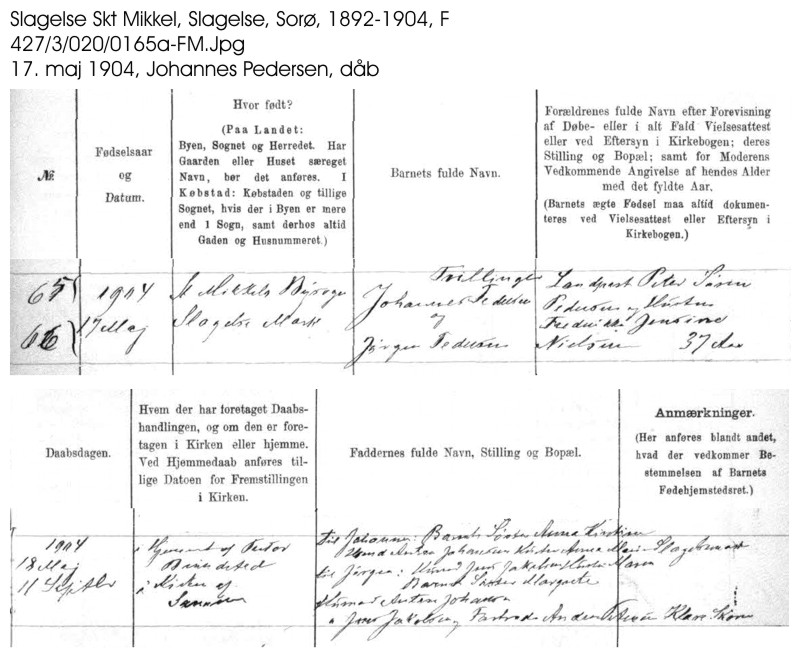 Slagelse Skt Mikkel, Slagelse, Sorø, 1892-1904, F
427/3/020/0165a-FM.Jpg
17. maj 1904, Johannes Pedersen, dåb
№
Fødselsaar
og
Datum.
Hvor født?
(Paa Landet:
Byen, Sognet og Herredet. Har
Gaarden eller Huset særeget
Navn, bør det anføres. I
Købstad: Købstaden og tillige
Sognet, hvis der i Byen er mere
end 1 Sogn, samt derhos altid
Gaden og Husnummeret.)
Barnets fulde Navn.
Forældrenes fulde Navn efter Forevisning
af Døbe- eller i alt Fald Vielsesattest
eller ved Eftersyn i Kirkebogen; deres
Stilling og Bopæl; samt for Moderens
Vedkommende Angivelse af hendes Alder
med det fyldte Aar.
(Barnets ægte Fødsel maa altid dokumen-
teres ved Vielsesattest eller Eftersyn i
Kirkebogen.)
65
66
1904
17 Maj
St Mikkels
Slagelse Mark
Trillinger
Johannes Pedersen
og
Jørgen Pedersen
Peter Søren
Pedersen og Hustru
Jensine
Nielsen 37 Aar
Daabsdagen.
Hvem der har foretaget Daabs-
handlingen, og om den er fore-
tagen i Kirken eller hjemme.
Ved Hjemmedaab anføres til-
lige Datoen for Fremstillingen
i Kirken.
Faddernes fulde Navn, Stilling og Bopæl.
Anmærkninger.
(Her anføres blandt andet,
hvad der vedkommer Be-
stemmelsen af Barnets
Fødehjemstedsret.)
1904
18 Maj
11 Septbr
i Hjemmet af Pastor
i Kirken af
Samme
til Johannes: Barnets Søster Anna Kirstine
Anton Johansen Hustru Anna Marie Slagelse Mark
til Jørgen: Jens Jakobsen Hustru Maren
Barnets Søster Margrete
Anton Johansen
Jens Jakobsen Anders